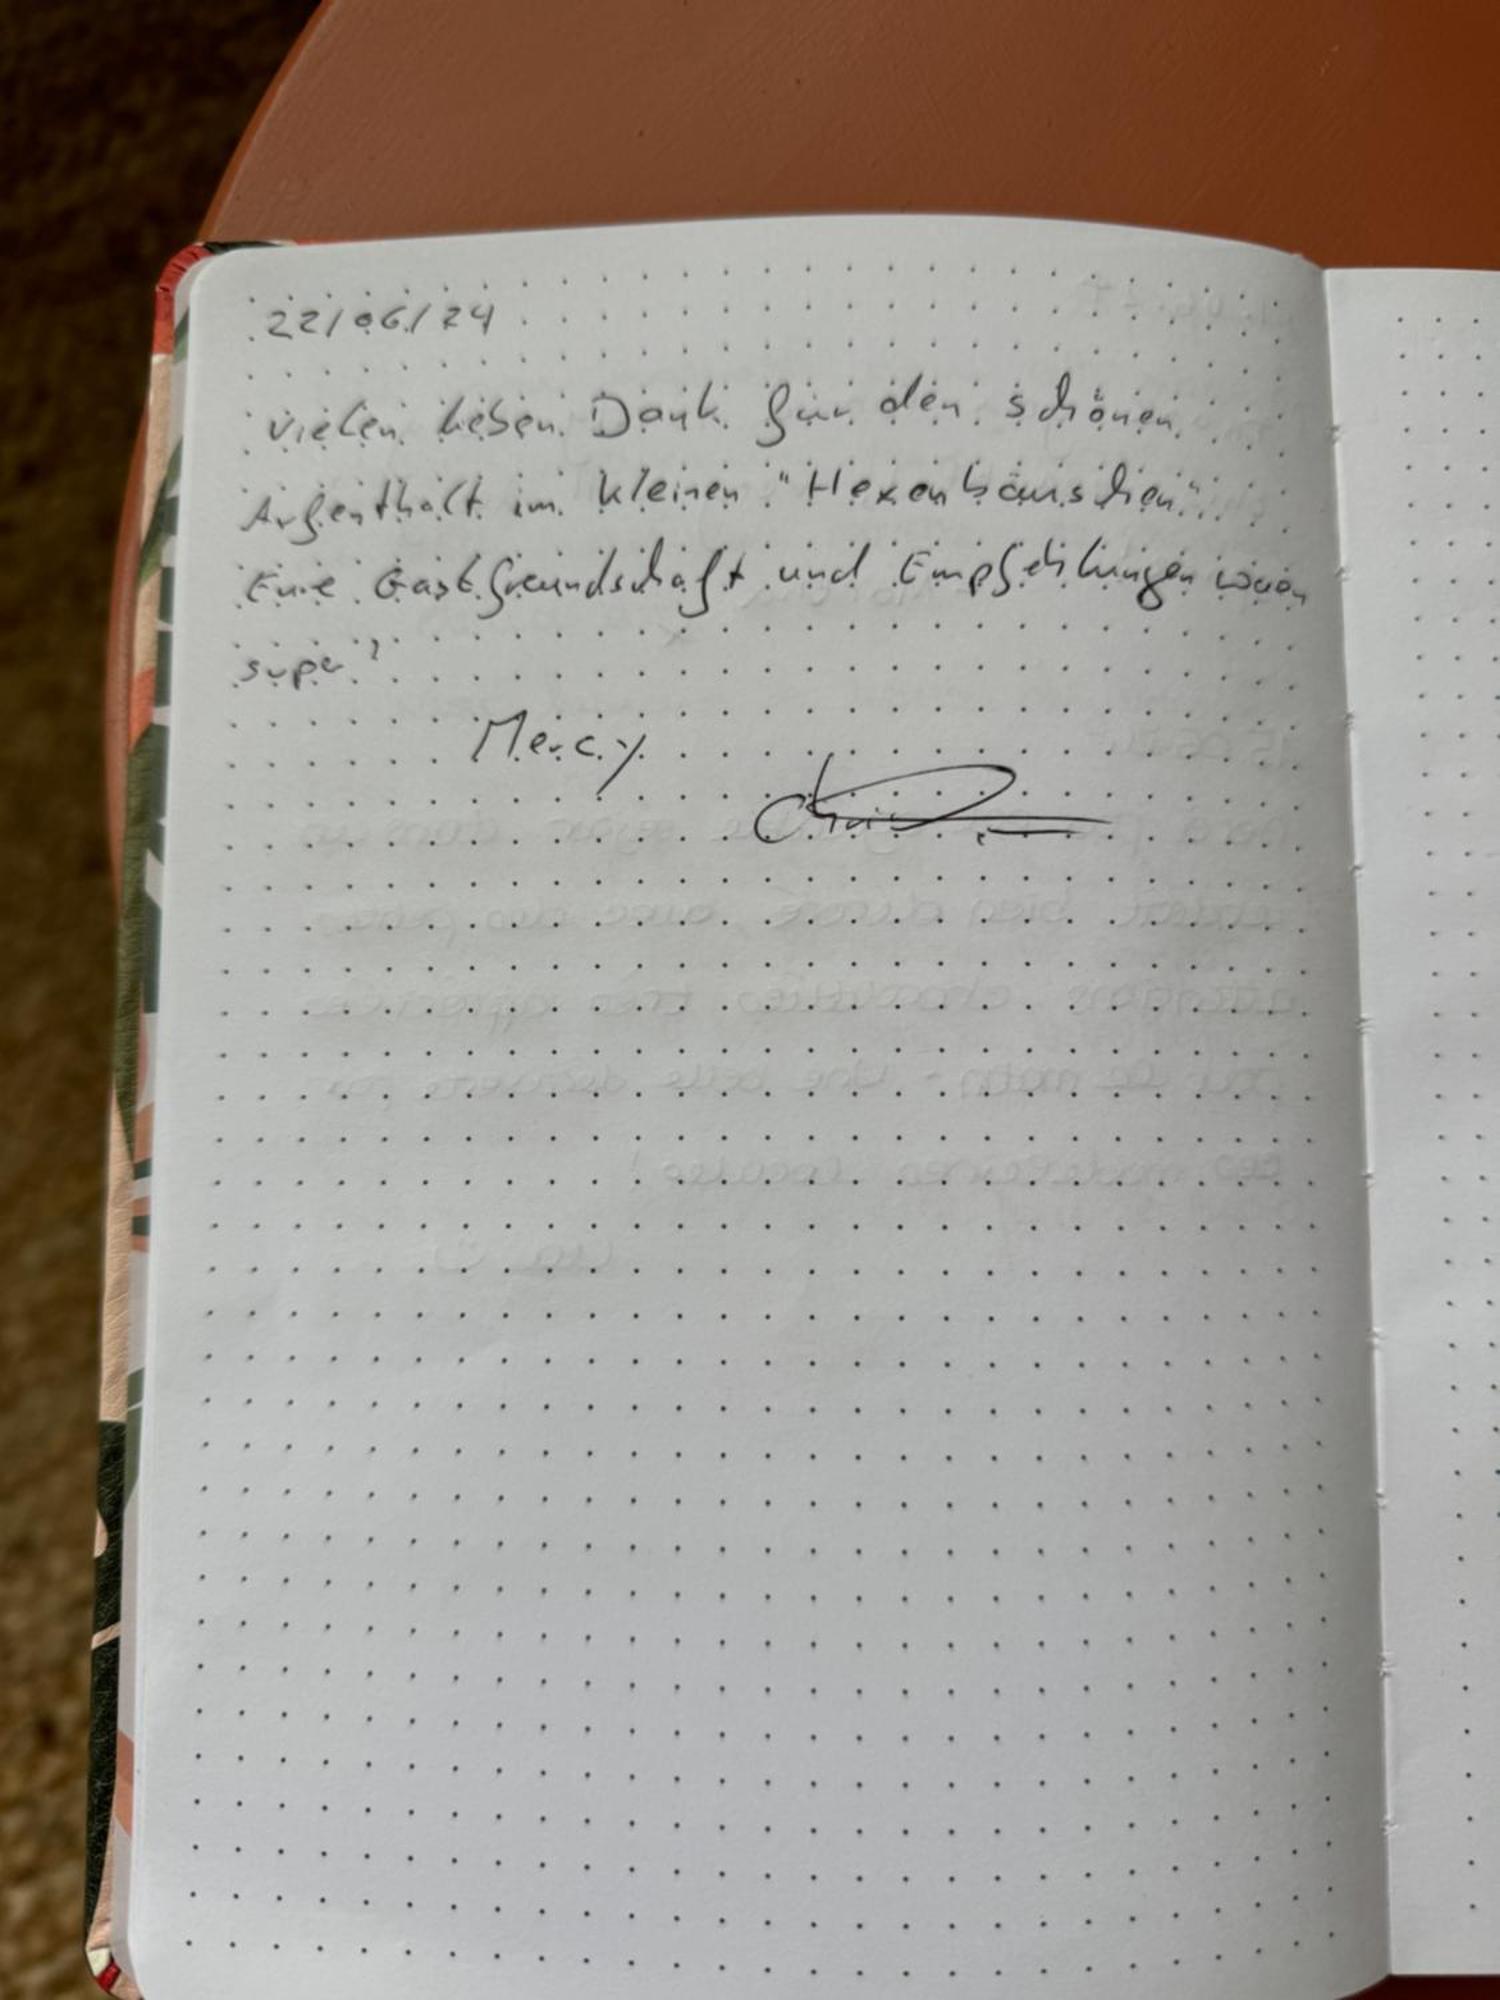 22/06/24
Vielen lieben Dank für den schönen
Aufenthalt im kleinen "Hexenhäuschen".
Eure Gastfreundschaft und Empfehlungen waren
super!
Mercy
Chris